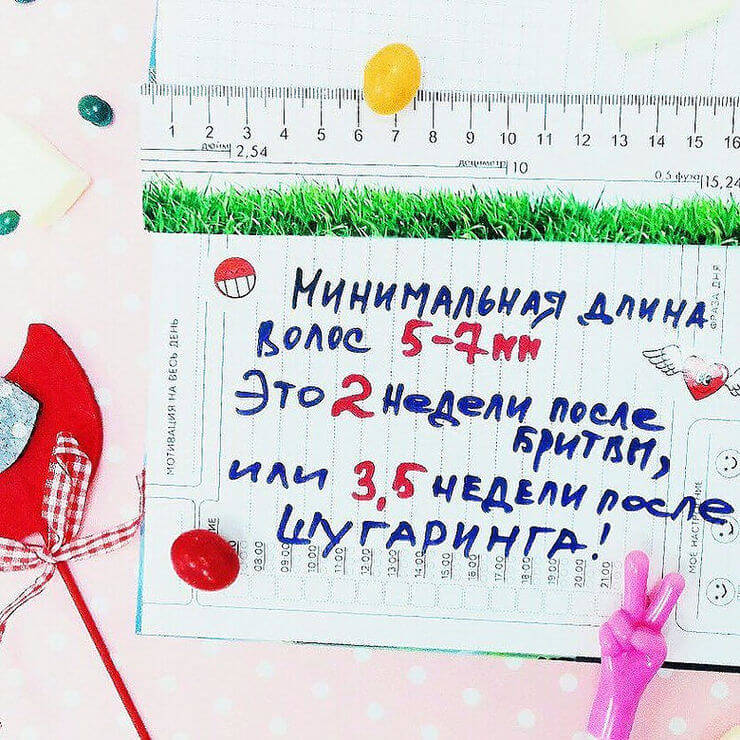 1 2 3 4 5 6 7 8 9 10 11 12 13 14 15 16
дюйм 2,54
дециметр 10
0,5 фута 15,24
ФРАЗА ДНЯ
МОТИВАЦИЯ НА ВЕСЬ ДЕНЬ
Минимальная длина
волос 5-7мм
Это 2 недели после
бритвы,
или 3,5 недели после
шугаринга!
МОЕ НАСТРОЕНИЕ
08:00 09:00 10:00 11:00 12:00 13:00 14:00 15:00 16:00 17:00 18:00 19:00 20:00 21:00